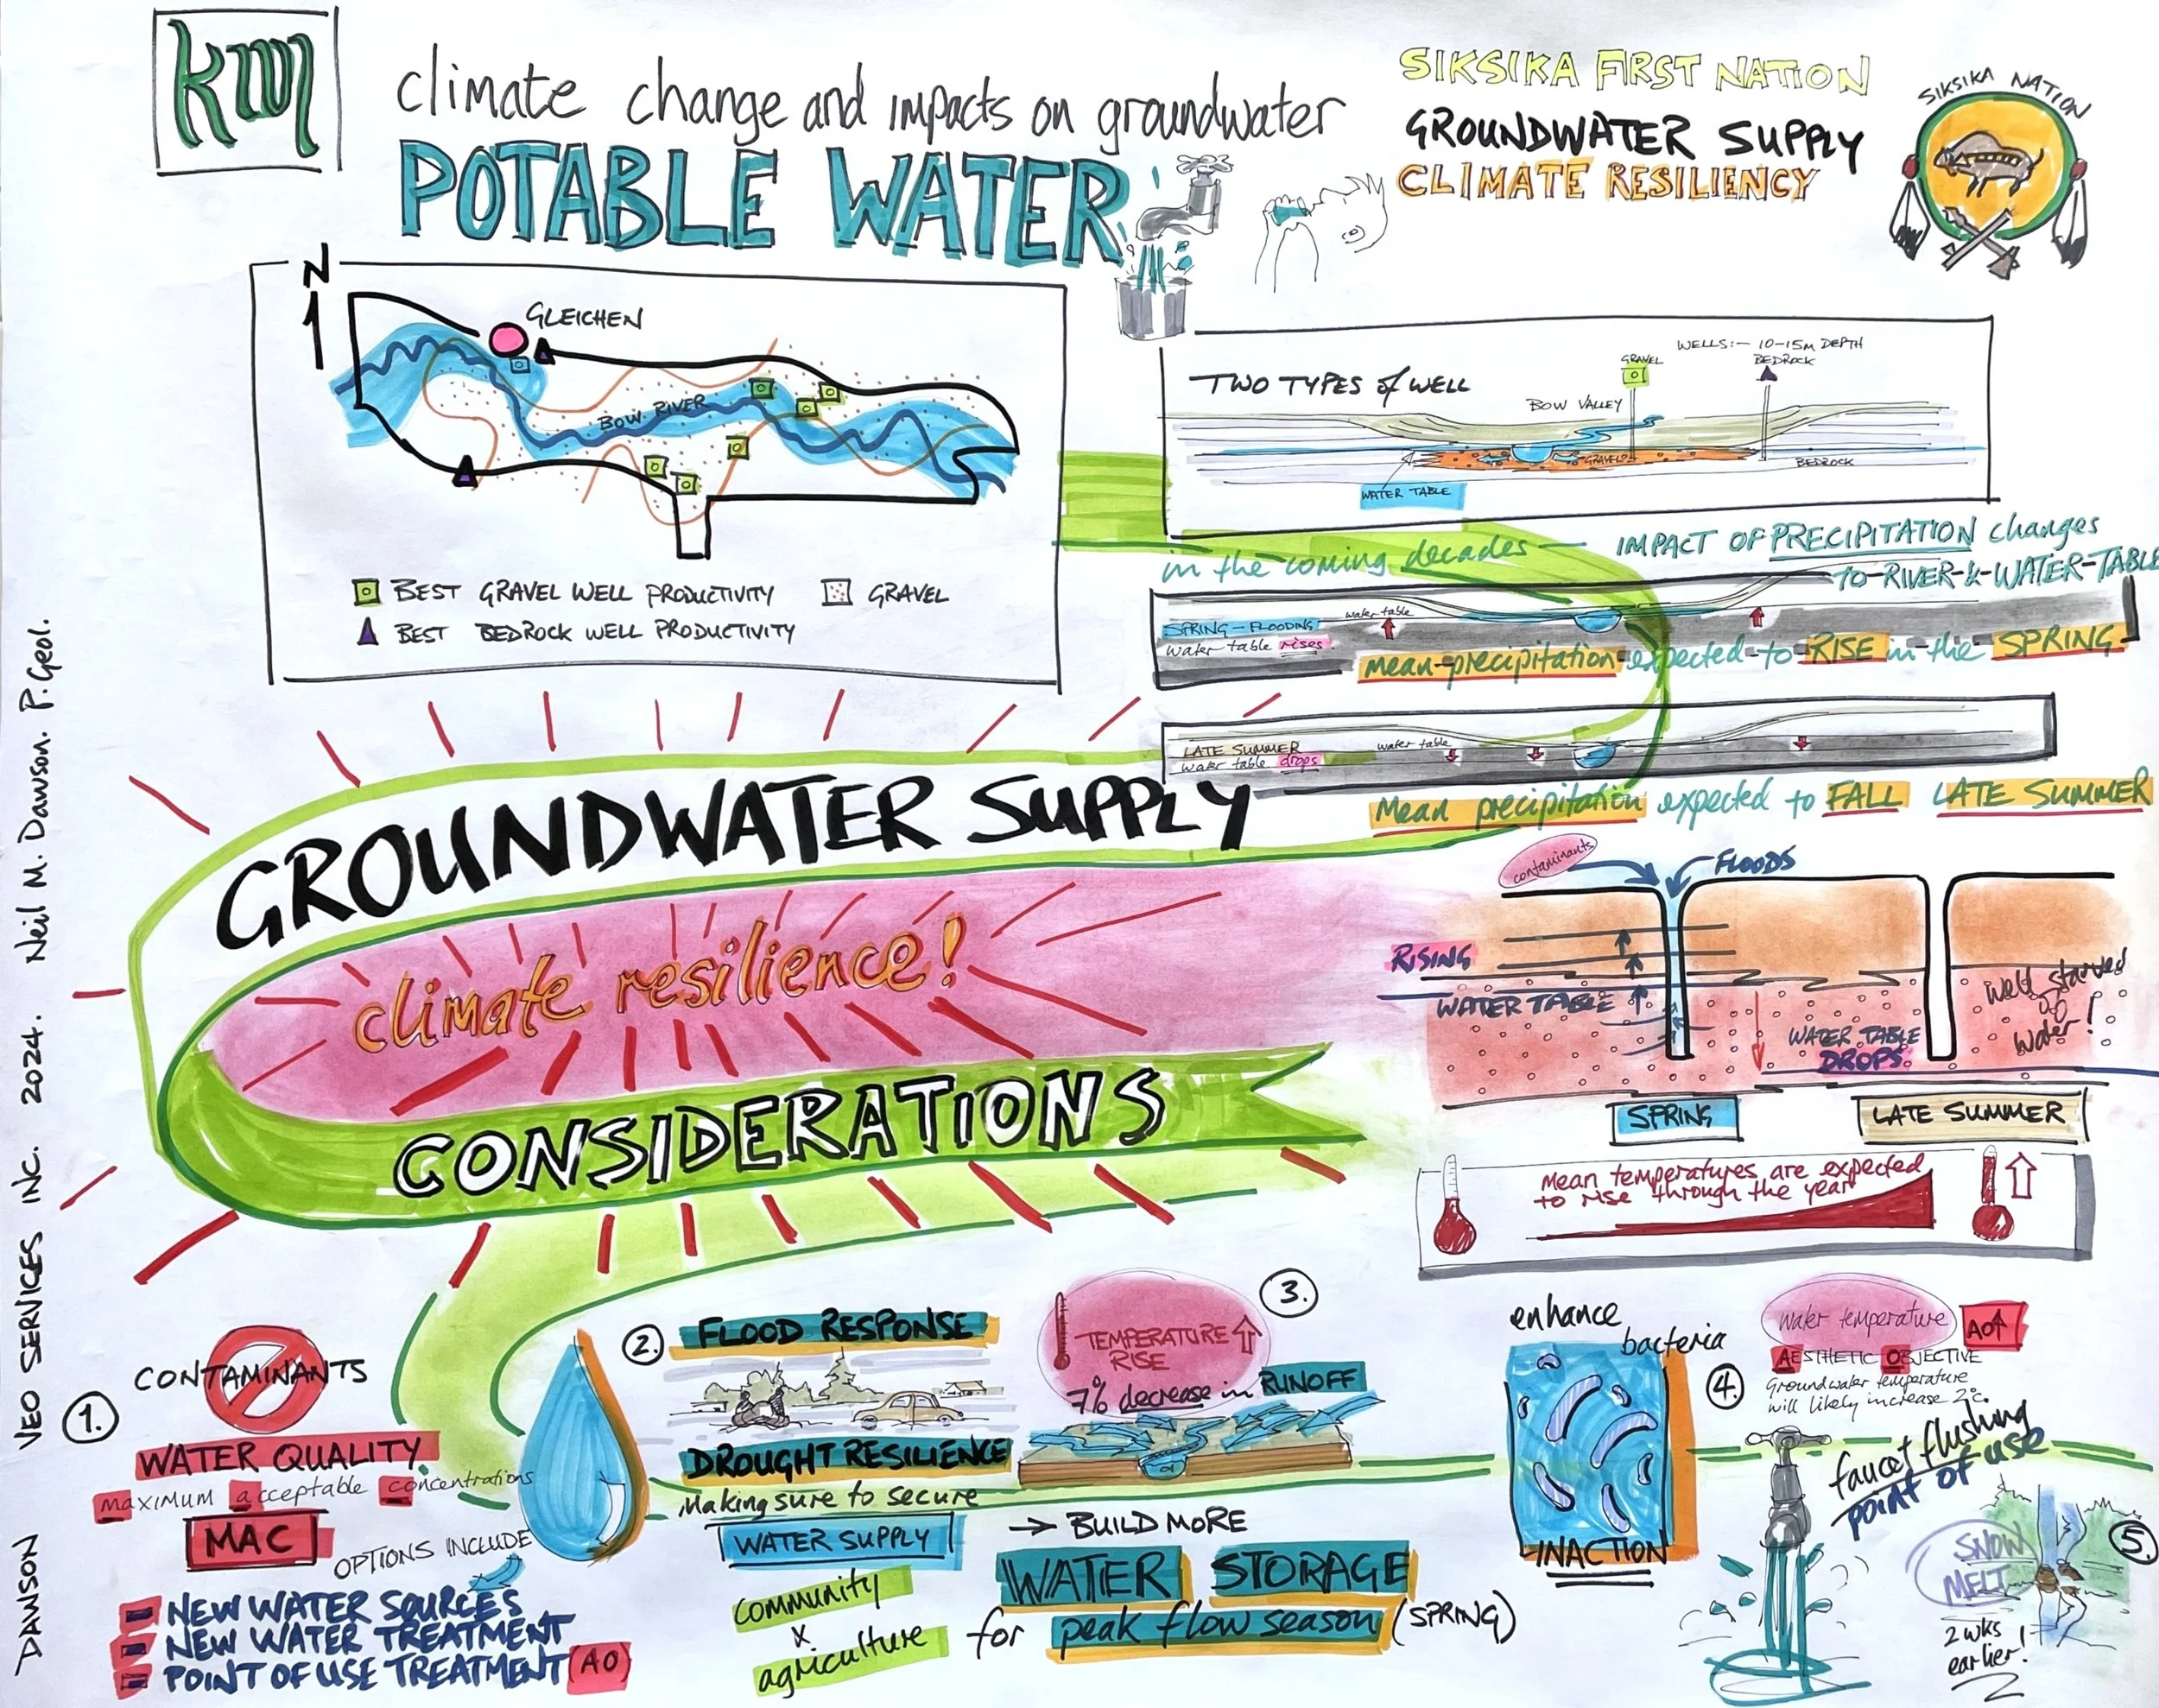 km
climate change and impacts on groundwater
POTABLE WATER
SIKSIKA FIRST NATION
GROUNDWATER SUPPLY
CLIMATE RESILIENCY
SIKSIKA NATION
N
GLEICHEN
BOW RIVER
BEST GRAVEL WELL PRODUCTIVITY
GRAVEL
BEST BEDROCK WELL PRODUCTIVITY
TWO TYPES of WELL
WELLS:- 10-15M DEPTH
GRAVEL
BEDROCK
BOW VALLEY
GRAVELS
BEDROCK
WATER TABLE
in the coming decades — IMPACT OF PRECIPITATION changes
TO RIVER & WATER TABLE
SPRING - FLOODING
water table rises
water table
mean precipitation expected to RISE in the SPRING
LATE SUMMER
water table drops
water table
Mean precipitation expected to FALL LATE SUMMER
GROUNDWATER SUPPLY
climate resilience!
CONSIDERATIONS
contaminants
FLOODS
RISING
WATER TABLE
WATER TABLE
DROPS
well starved
of
water!
SPRING
LATE SUMMER
Mean temperatures are expected
to rise through the year
1.
CONTAMINANTS
WATER QUALITY
maximum acceptable concentrations
MAC
OPTIONS INCLUDE
NEW WATER SOURCES
NEW WATER TREATMENT
POINT OF USE TREATMENT (AO)
2.
FLOOD RESPONSE
DROUGHT RESILIENCE
Making sure to secure
WATER SUPPLY
community
x
agriculture
3.
TEMPERATURE
RISE
7% decrease in RUNOFF
→ BUILD MORE
WATER STORAGE
for peak flow season (SPRING)
enhance
bacteria
INACTION
4.
water temperature
AO↑
AESTHETIC OBJECTIVE
Groundwater temperature
will likely increase 2°c.
faucet flushing
point of use
5.
SNOW
MELT
2 wks
earlier!
DAWSON VEO SERVICES INC. 2024. Neil M. Dawson. P. Geol.